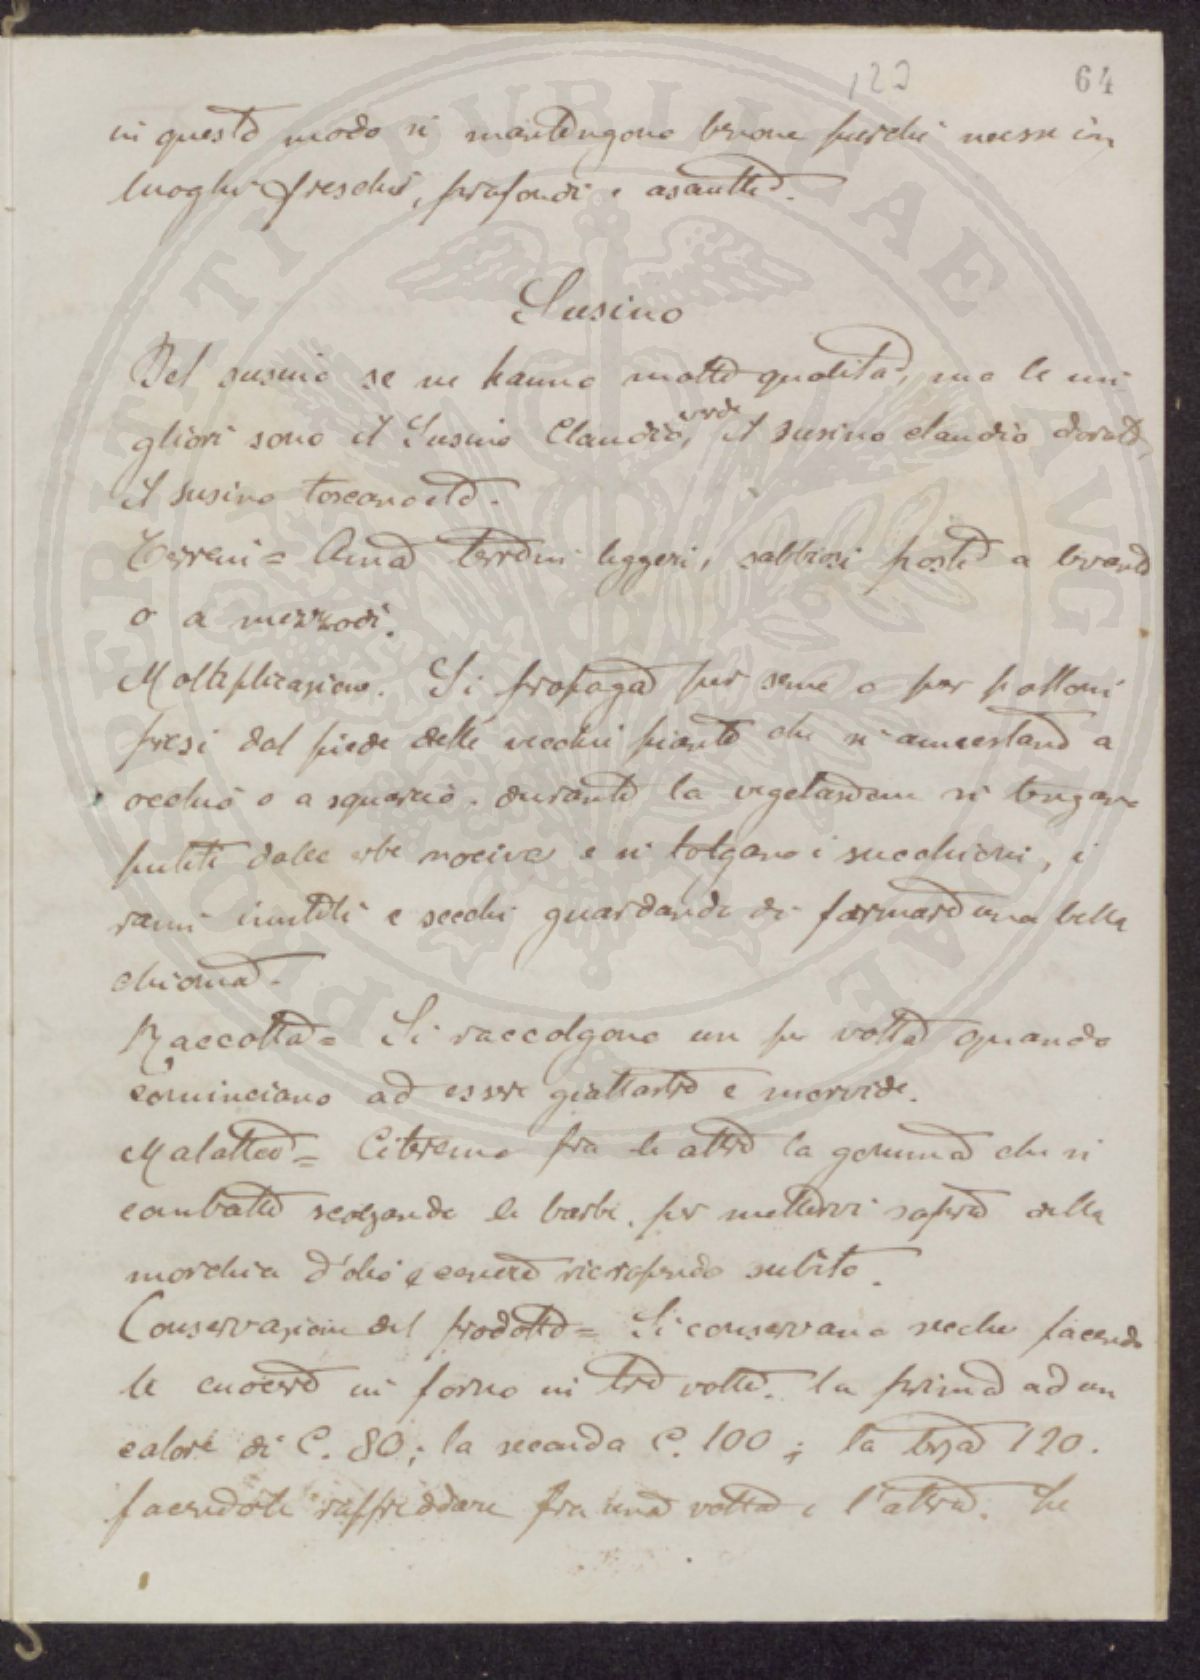 122
64
in questo modo si mantengono benone purchè messe in
luoghi freschi, profondi e asciutti.
Susino
Del susino se ne hanno molte qualità, ma le mi
gliori sono il Susino Claudio verde, il susino claudio dorato,
il susino toscano etc.
Terreni = Ama terreni leggeri, sabbiosi posti a levante
o a mezzodì.
Moltiplicazione. Si propaga per seme o per polloni
presi dal piede delle vecchie piante che si annestano a
occhio o a squarcio. durante la vegetazione si tengano
puliti dalle erbe nocive e si tolgano i succhioni, i
rami inutili e secchi guardando di formare una bella
chioma.
Raccolta = Si raccolgono un po' volta quando
cominciano ad essere giallastre e morvide.
Malattie = Citeremo fra le altre la gomma che si
combatte scalzando le barbe, per mettervi sopra della
morchia d'olio e cenere ricoprendo subito.
Conservazione del prodotto = Si conservano secche facendo
le cuocere in forno in tre volte. la prima ad un
calore di C. 80; la seconda C. 100; la terza 120.
facendole raffreddare fra una volta e l'altra. Le
PROSPERITATI PVBLICAE AVGENDAE